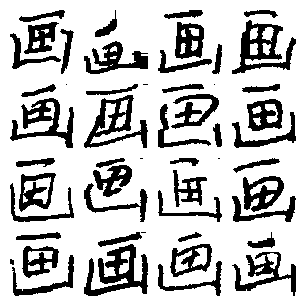 画画画画
画画画画
画画画画
画画画画